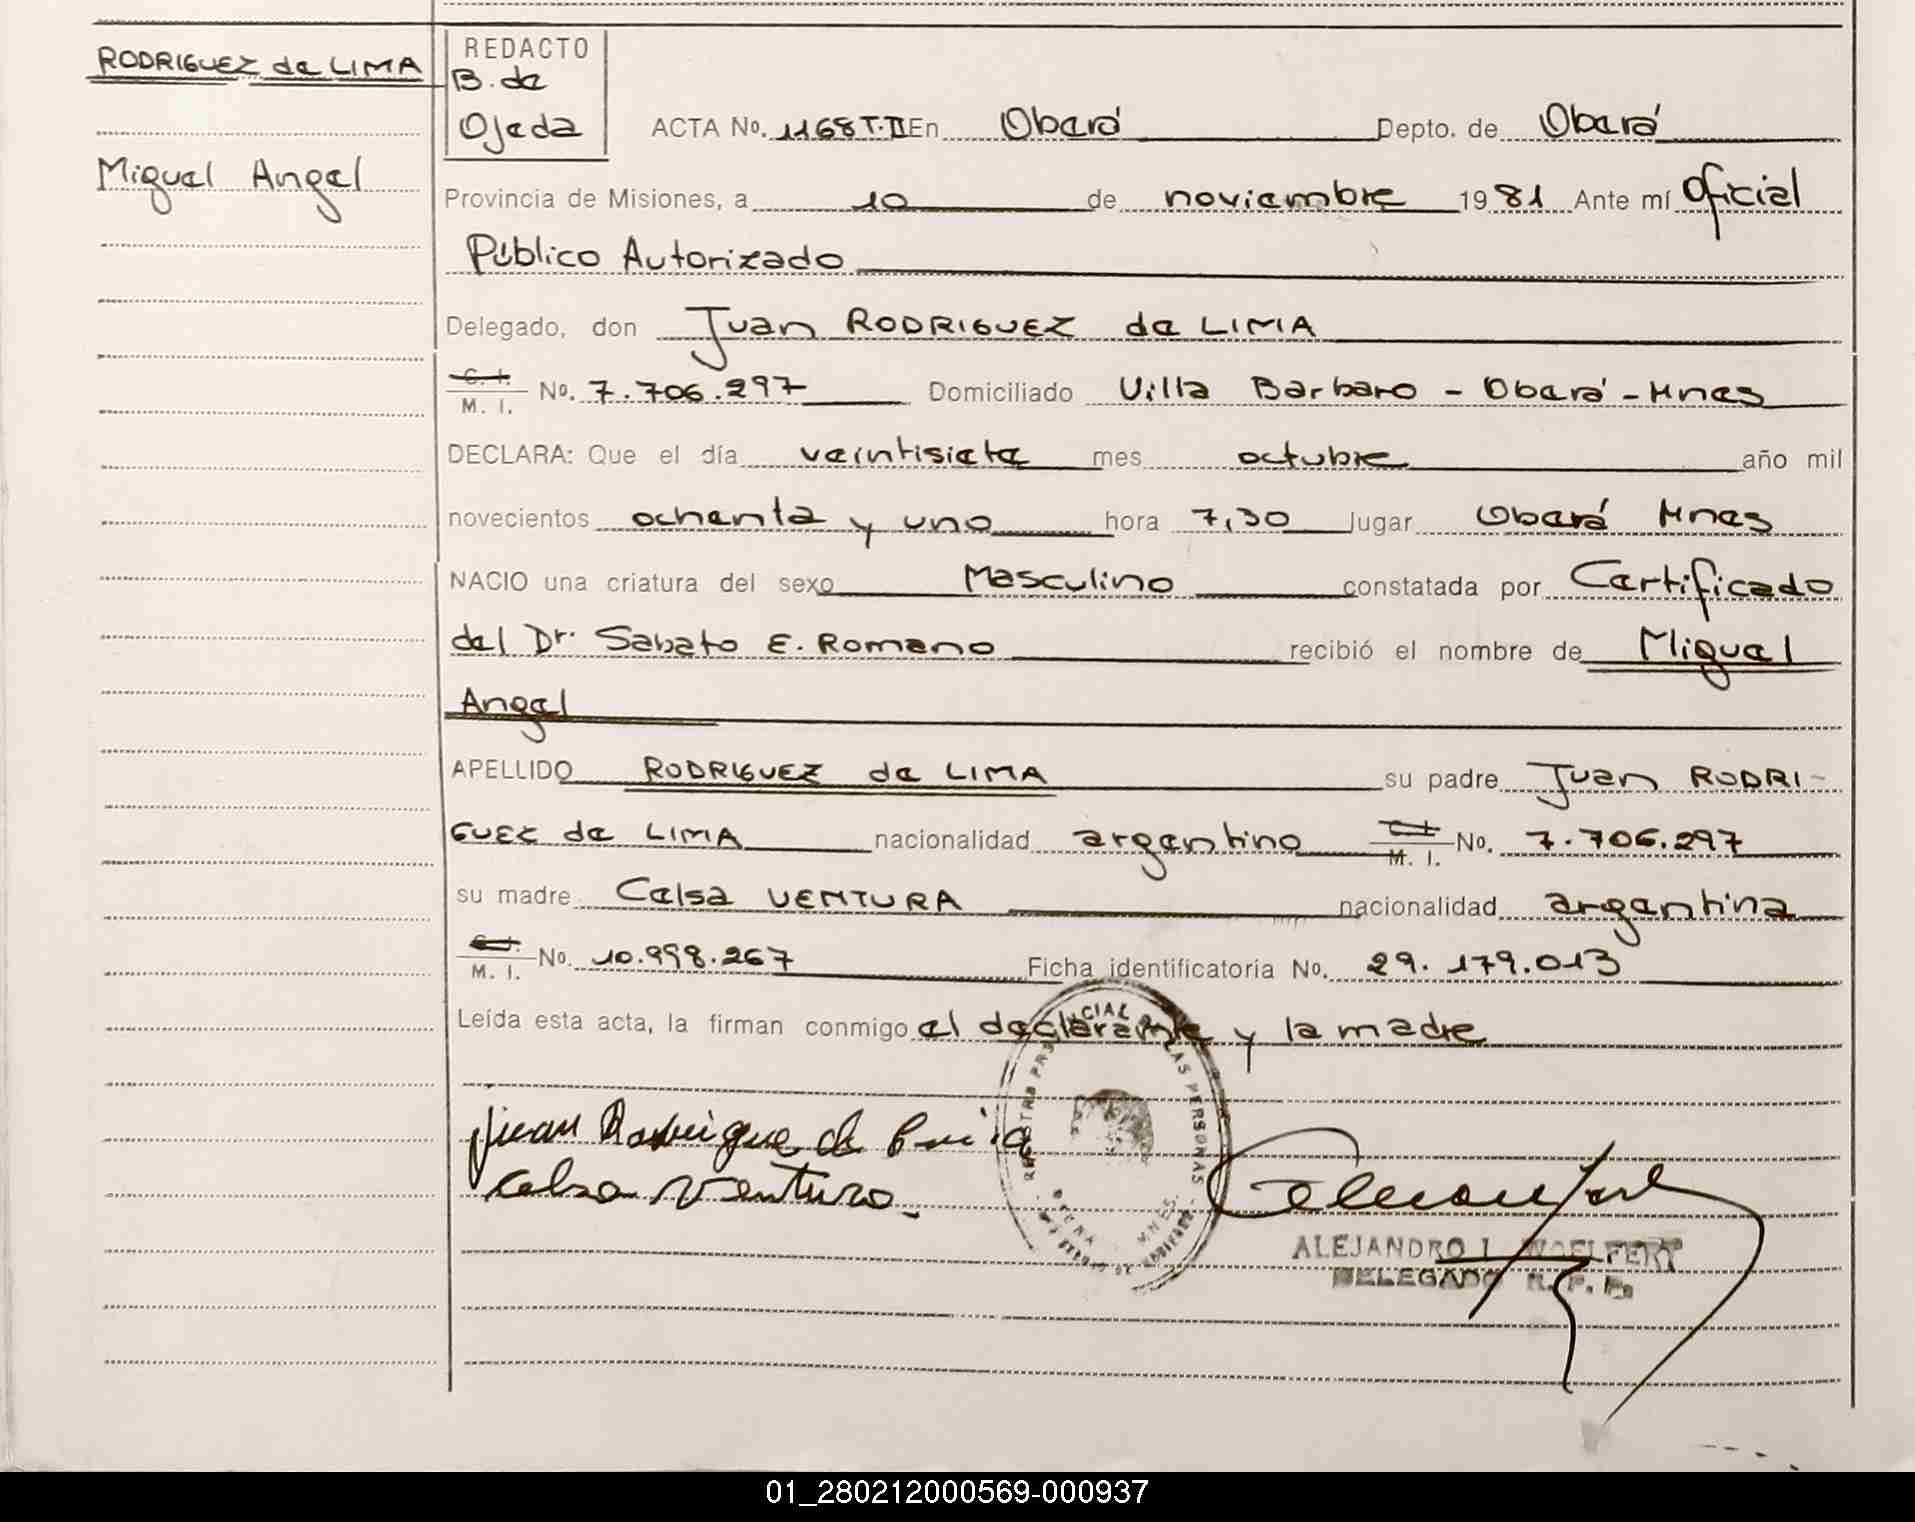 RODRIGUEZ de LIMA
Miguel Angel
REDACTO
B. de
Ojeda
ACTA No. 1168 T.II En Oberá Depto. de Oberá
Provincia de Misiones, a 10 de noviembre 1981 Ante mí Oficial
Público Autorizado
Delegado, don Juan RODRIGUEZ de LIMA
C. I.
M. I. No. 7.706.297 Domiciliado Villa Barbaro - Oberá - Mnes
DECLARA: Que el día veintisiete mes octubre año mil
novecientos ochenta y uno hora 7,30 lugar Oberá Mnes
NACIO una criatura del sexo Masculino constatada por Certificado
del Dr. Sabato E. Romano recibió el nombre de Miguel
Angel
APELLIDO RODRIGUEZ de LIMA su padre Juan RODRI-
GUEZ de LIMA nacionalidad argentino C. I. M. I. No. 7.706.297
su madre Celsa VENTURA nacionalidad argentina
C. I.
M. I. No. 10.998.267 Ficha identificatoria No. 29.179.013
Leída esta acta, la firman conmigo el declarante y la madre
Juan Rodrigue de
Celsa Ventura
REGISTRO PROVINCIAL DE LAS PERSONAS
OBERA MNES.
ALEJANDRO I. WOELFERT
DELEGADO R. P. P.
01_280212000569-000937